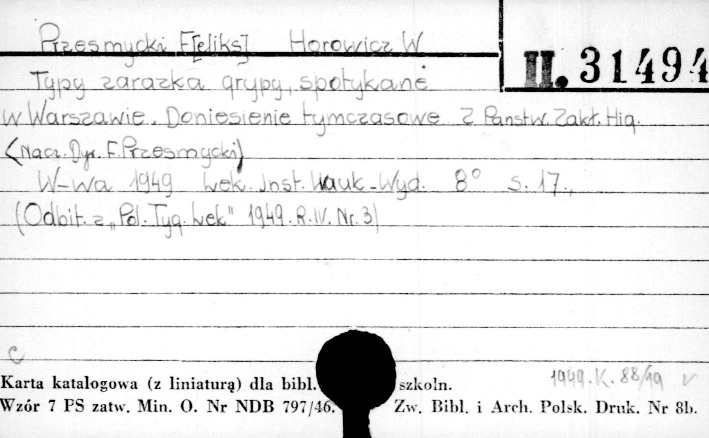 Przesmycki F[eliks] Horowicz W.
II. 31494
Typy zarazka grypy, spotykane
w Warszawie. Doniesienie tymczasowe Z Państw. Zakł. Hig.
(Nacz. Dyr. F. Przesmycki)
W-wa 1949 Lek. Inst. Nauk-Wyd. 8° s. 17.,
(Odbit. z „Pol. Tyg. Lek" 1949. R. IV. Nr. 3)
C
1949. K. 88/19 v
Karta katalogowa (z liniaturą) dla bibl. szkoln.
Wzór 7 PS zatw. Min. O. Nr NDB 797/46. Zw. Bibl. i Arch. Polsk. Druk. Nr 8b.